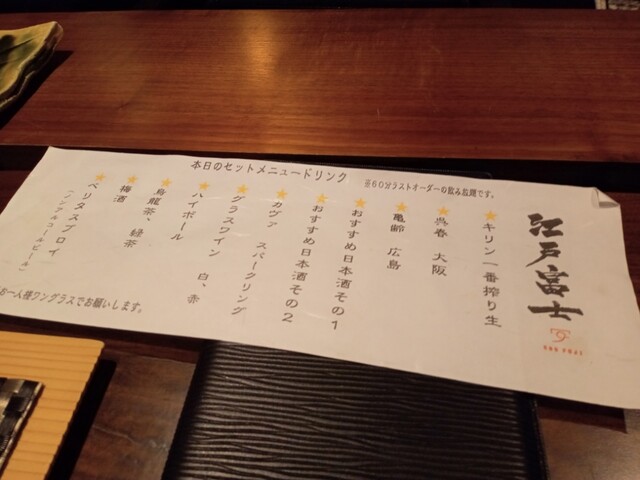 本日のセットメニュードリンク
※60分ラストオーダーの飲み放題です。
江戸富士
★キリン一番搾り生
★呉春 大阪
★亀齢 広島
★おすすめ日本酒その1
★おすすめ日本酒その2
★カヴァ スパークリング
★グラスワイン 白、赤
★ハイボール
★烏龍茶、緑茶
★梅酒
★ベリタスブロイ
(ノンアルコールビール)
お一人様ワングラスでお願いします。